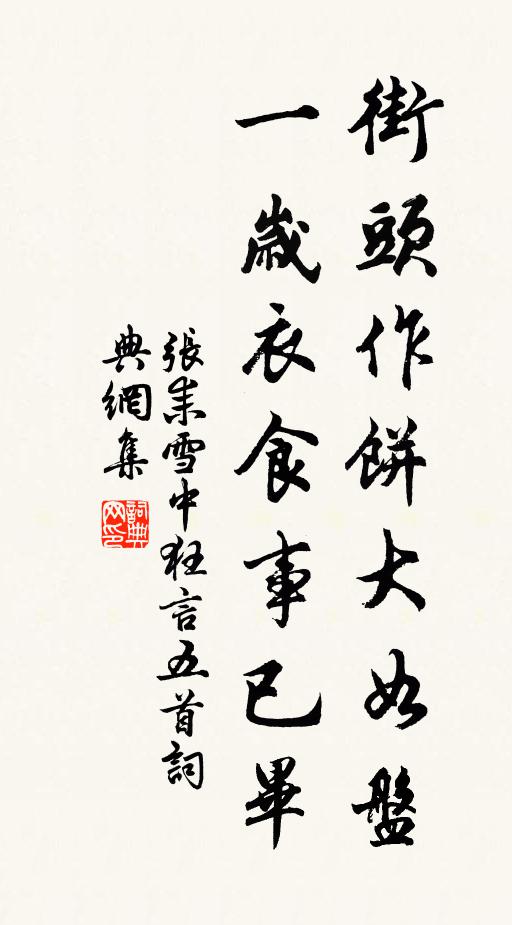 街頭作餅大如盤
一歲衣食事已畢
張耒雪中狂言五首詞
典網集
詞典网印